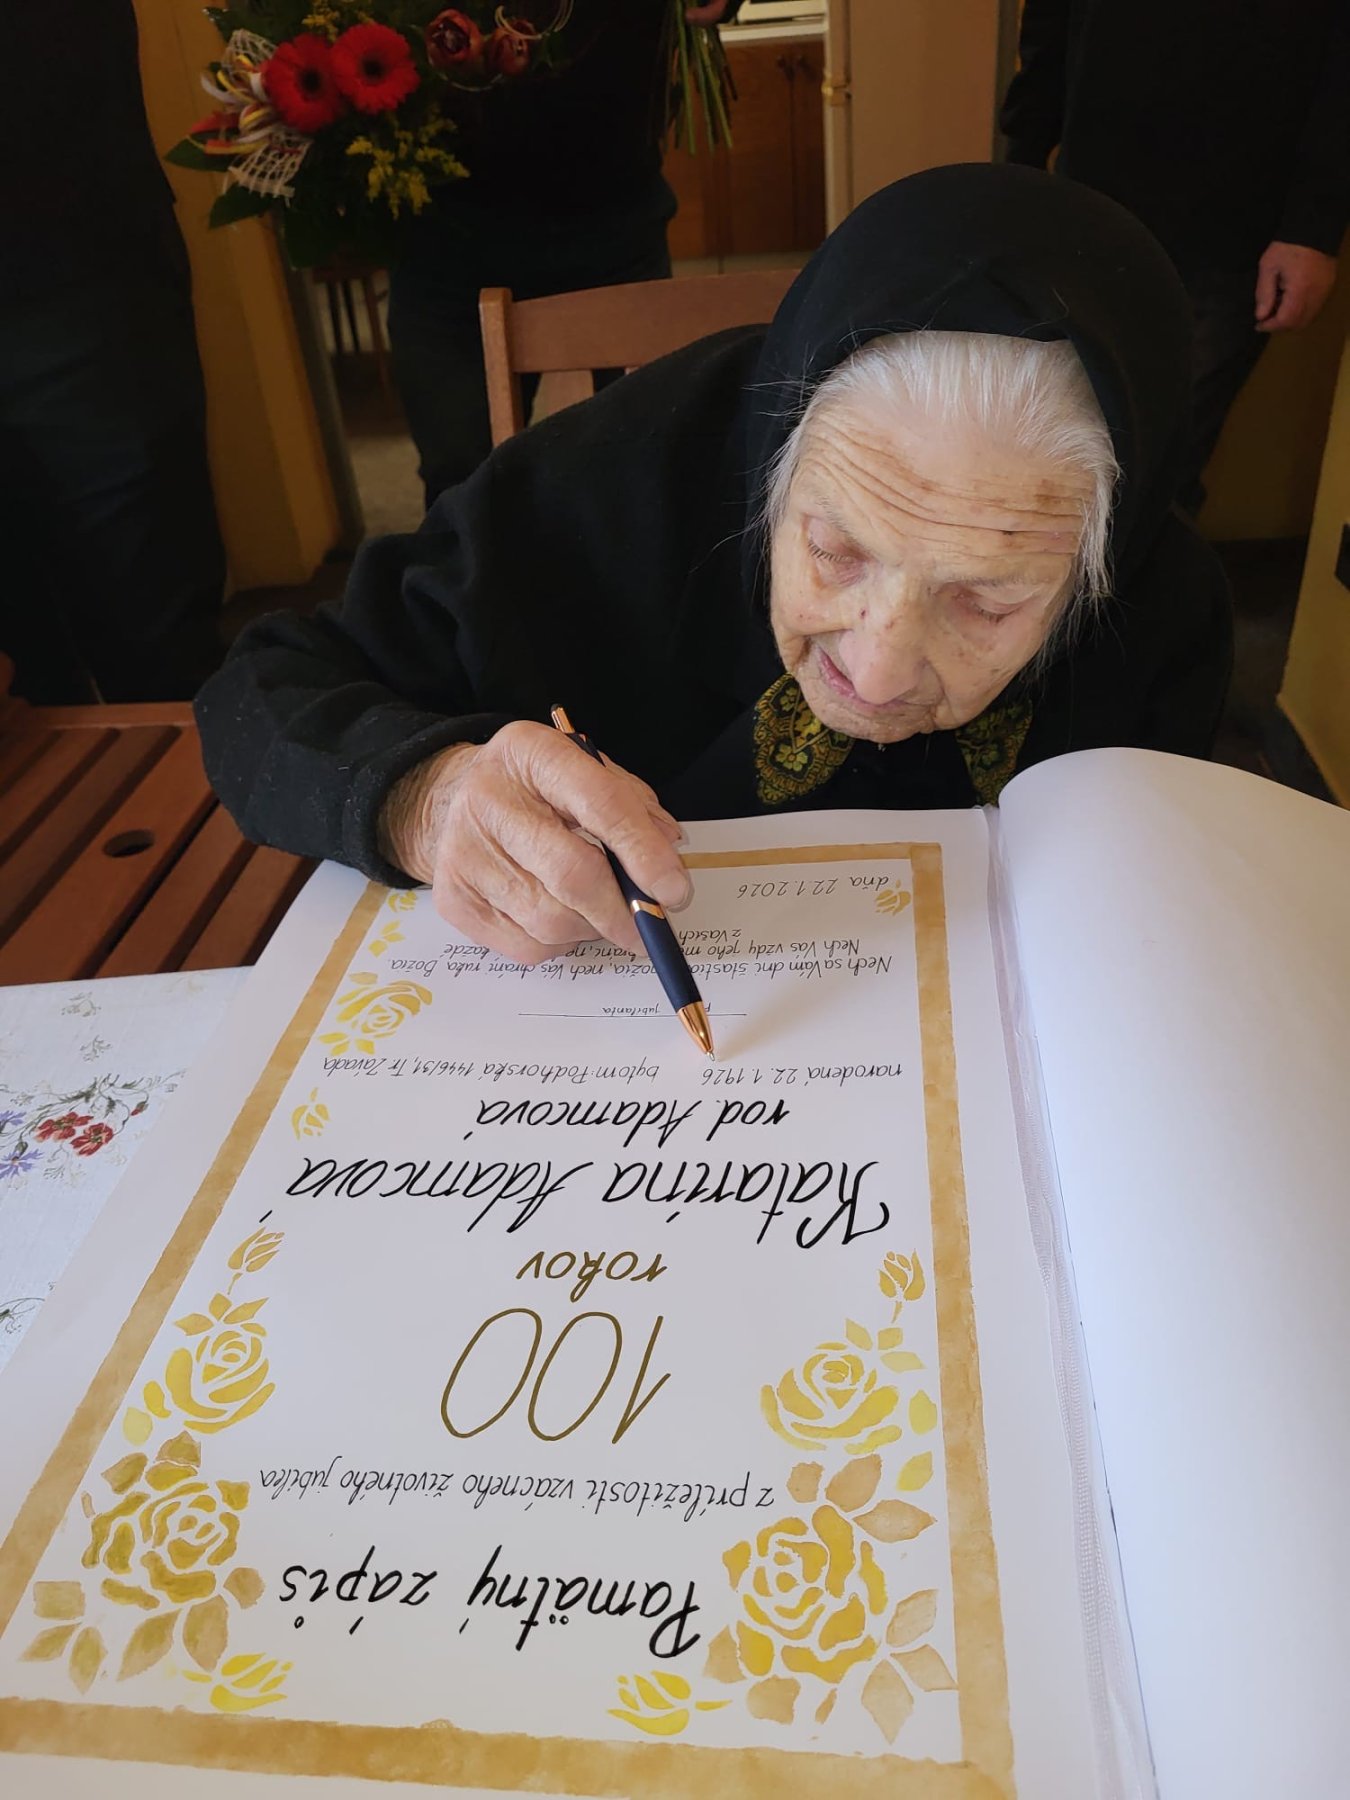 Pamätný zápis
z príležitosti vzácneho životného jubilea
100
rokov
Katarína Adamcová
rod. Adamcová
narodená 22.1.1926 bytom: Podhorská 1446/31, Tr. Závada
jubilanta
Nech sa Vám dní šťastia požia, nech Vás chráni ruka Božia.
Nech Vás vždy jeho každé
z Vašich
dňa 22.1.2026